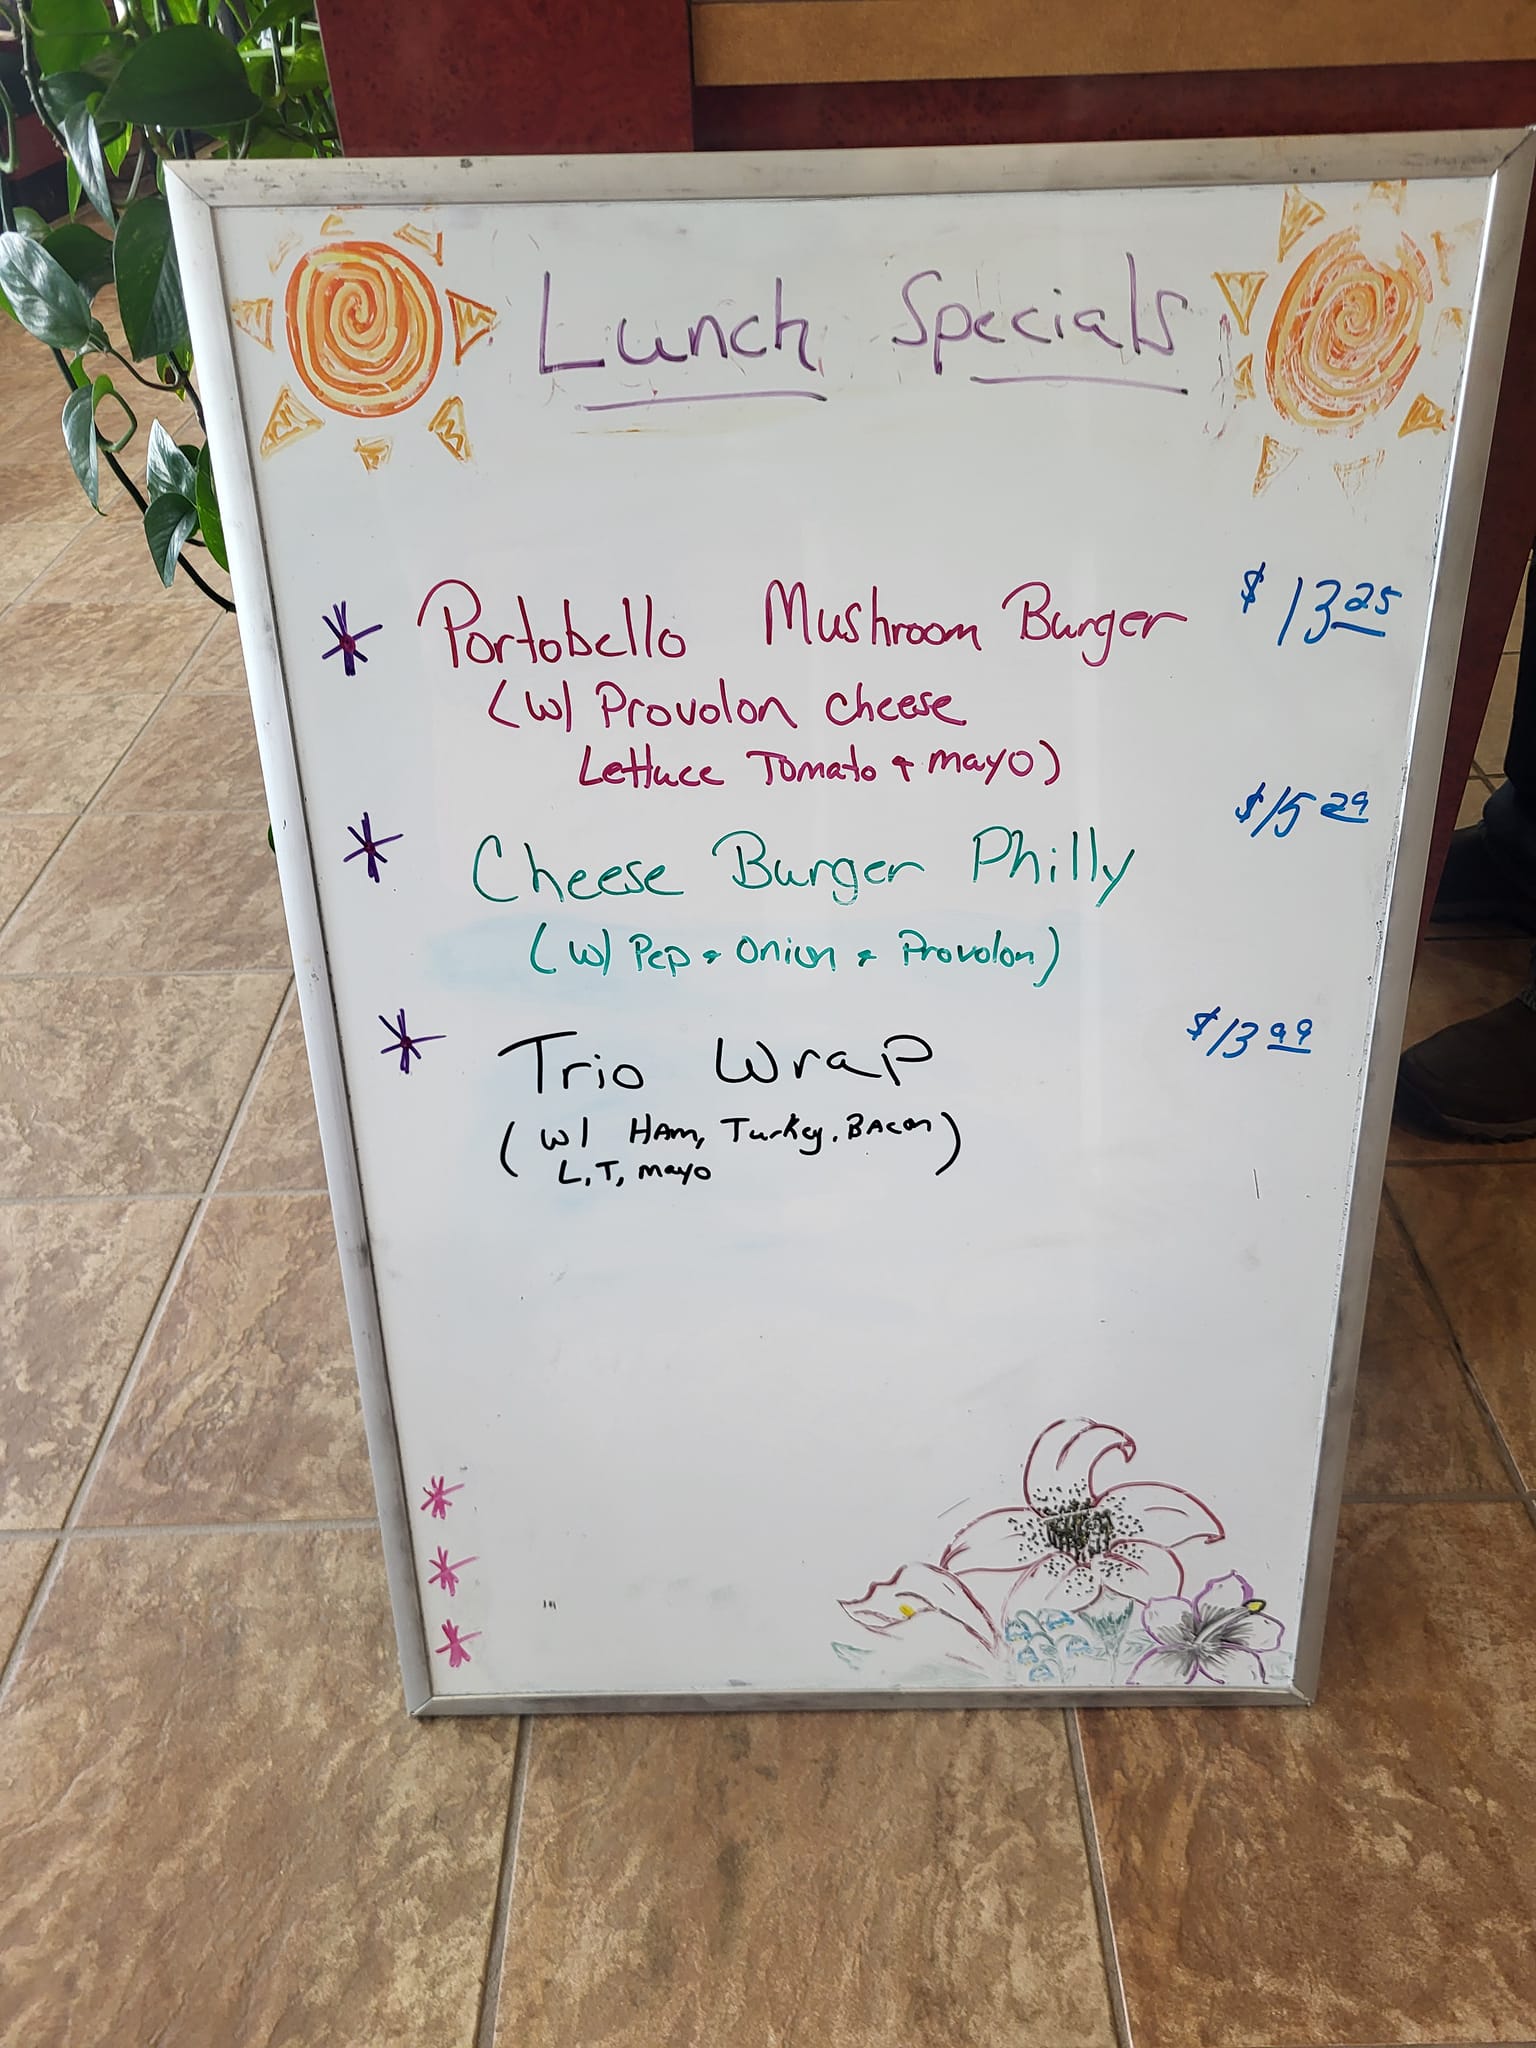 Lunch Specials
* Portobello Mushroom Burger $13.25
(w/ Provolon cheese
Lettuce Tomato & mayo)
* Cheese Burger Philly $15.29
(w/ Pep & Onion & Provolon)
* Trio Wrap $13.99
(w/ Ham, Turkey, Bacon
L, T, mayo)
*
*
*